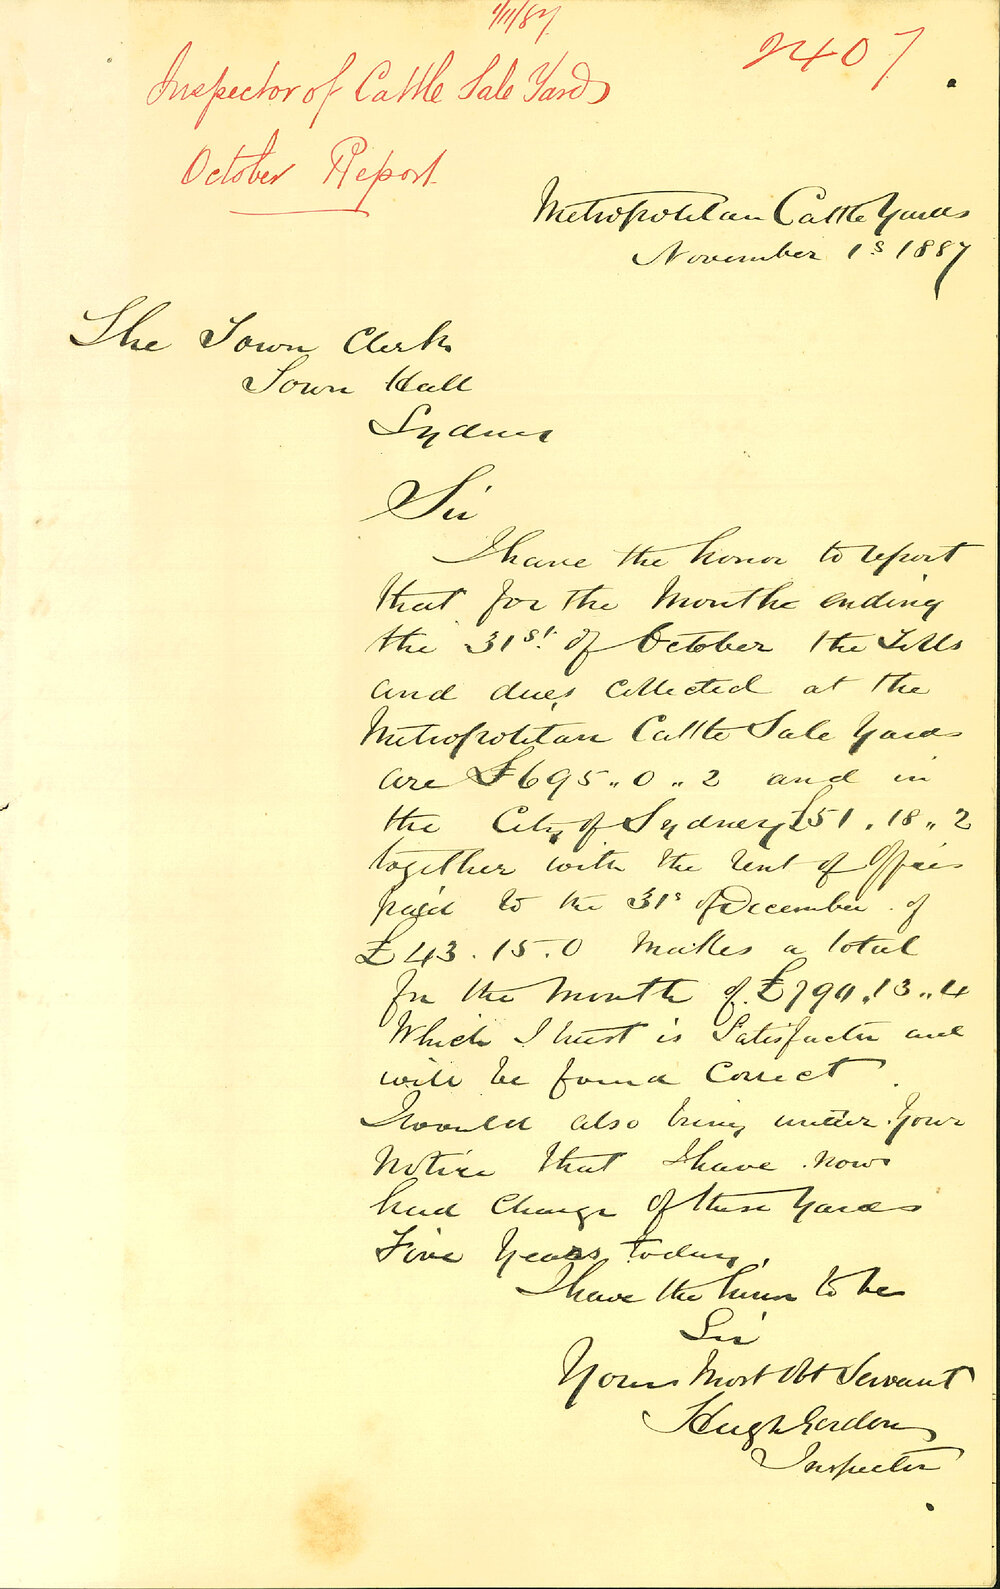 1/11/87
2407
Inspector of Cattle Sale Yards
October Report
Metropolitan Cattle Yards
November 1s 1887
The Town Clerk
Town Hall
Sydney
Sir
I have the honor to report
that for the Months ending
the 31st. of October the Tolls
and dues collected at the
Metropolitan Cattle Sale Yards
are £695..0..2 and in
the City of Sydney £51.18..2
together with the rent of Offices
paid to the 31s of December of
£43.15.0 Makes a total
for the Month of £790.13..4
Which I trust is Satisfactor and
will be found Correct
I would also bring under your
Notice that I have now
had Charge of these Yards
Five Years today.
I have the honor to be
Sir
Yours Most Obt Servant
Hugh Gordon
Inspector